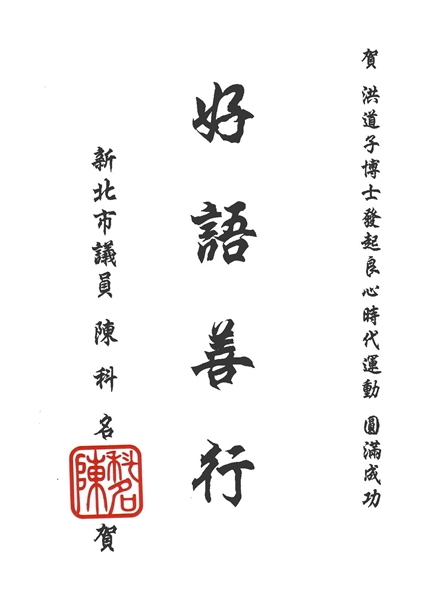 賀 洪道子博士發起良心時代運動 圓滿成功
好語善行
新北市議員 陳科名 賀
陳科名